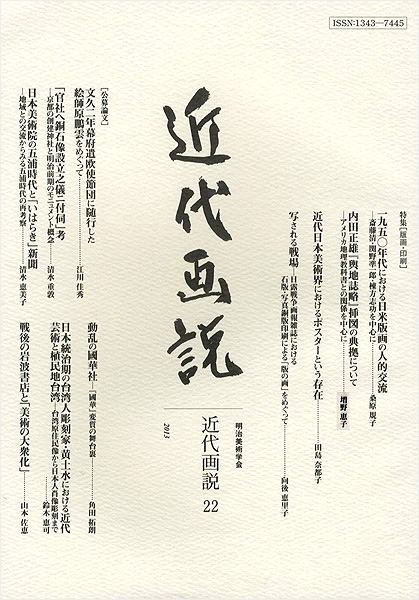 ISSN:1343―7445
近代画説
特集【版画・印刷】
一九五〇年代における日米版画の人的交流
―斎藤清・関野凖一郎・棟方志功を中心に―………桑原 規子
内田正雄『輿地誌略』挿図の典拠について
―アメリカ地理教科書との関係を中心に―………増野 恵子
近代日本美術界におけるポスターという存在………田島 奈都子
写される戦場―日露戦争画報雑誌における
石版・写真銅版印刷による「版の画」をめぐって………向後 恵里子
［公募論文］
文久二年幕府遣欧使節団に随行した
絵師原鵬雲をめぐって………江川 佳秀
「官社へ銅石像設立之儀ニ付伺」考
―京都の創建神社と明治前期のモニュメント概念………清水 重敦
日本美術院の五浦時代と「いはらき」新聞
―地域との交流からみる五浦時代の再考察………清水 恵美子
動乱の國華社―「國華」変質の舞台裏………角田 拓朗
日本統治期の台湾人彫刻家・黄土水における近代
芸術と植民地台湾―台湾原住民像から日本人肖像彫刻まで………鈴木 恵可
戦後の岩波書店と「美術の大衆化」………山本 佐恵
明治美術学会
近代画説 22
2013